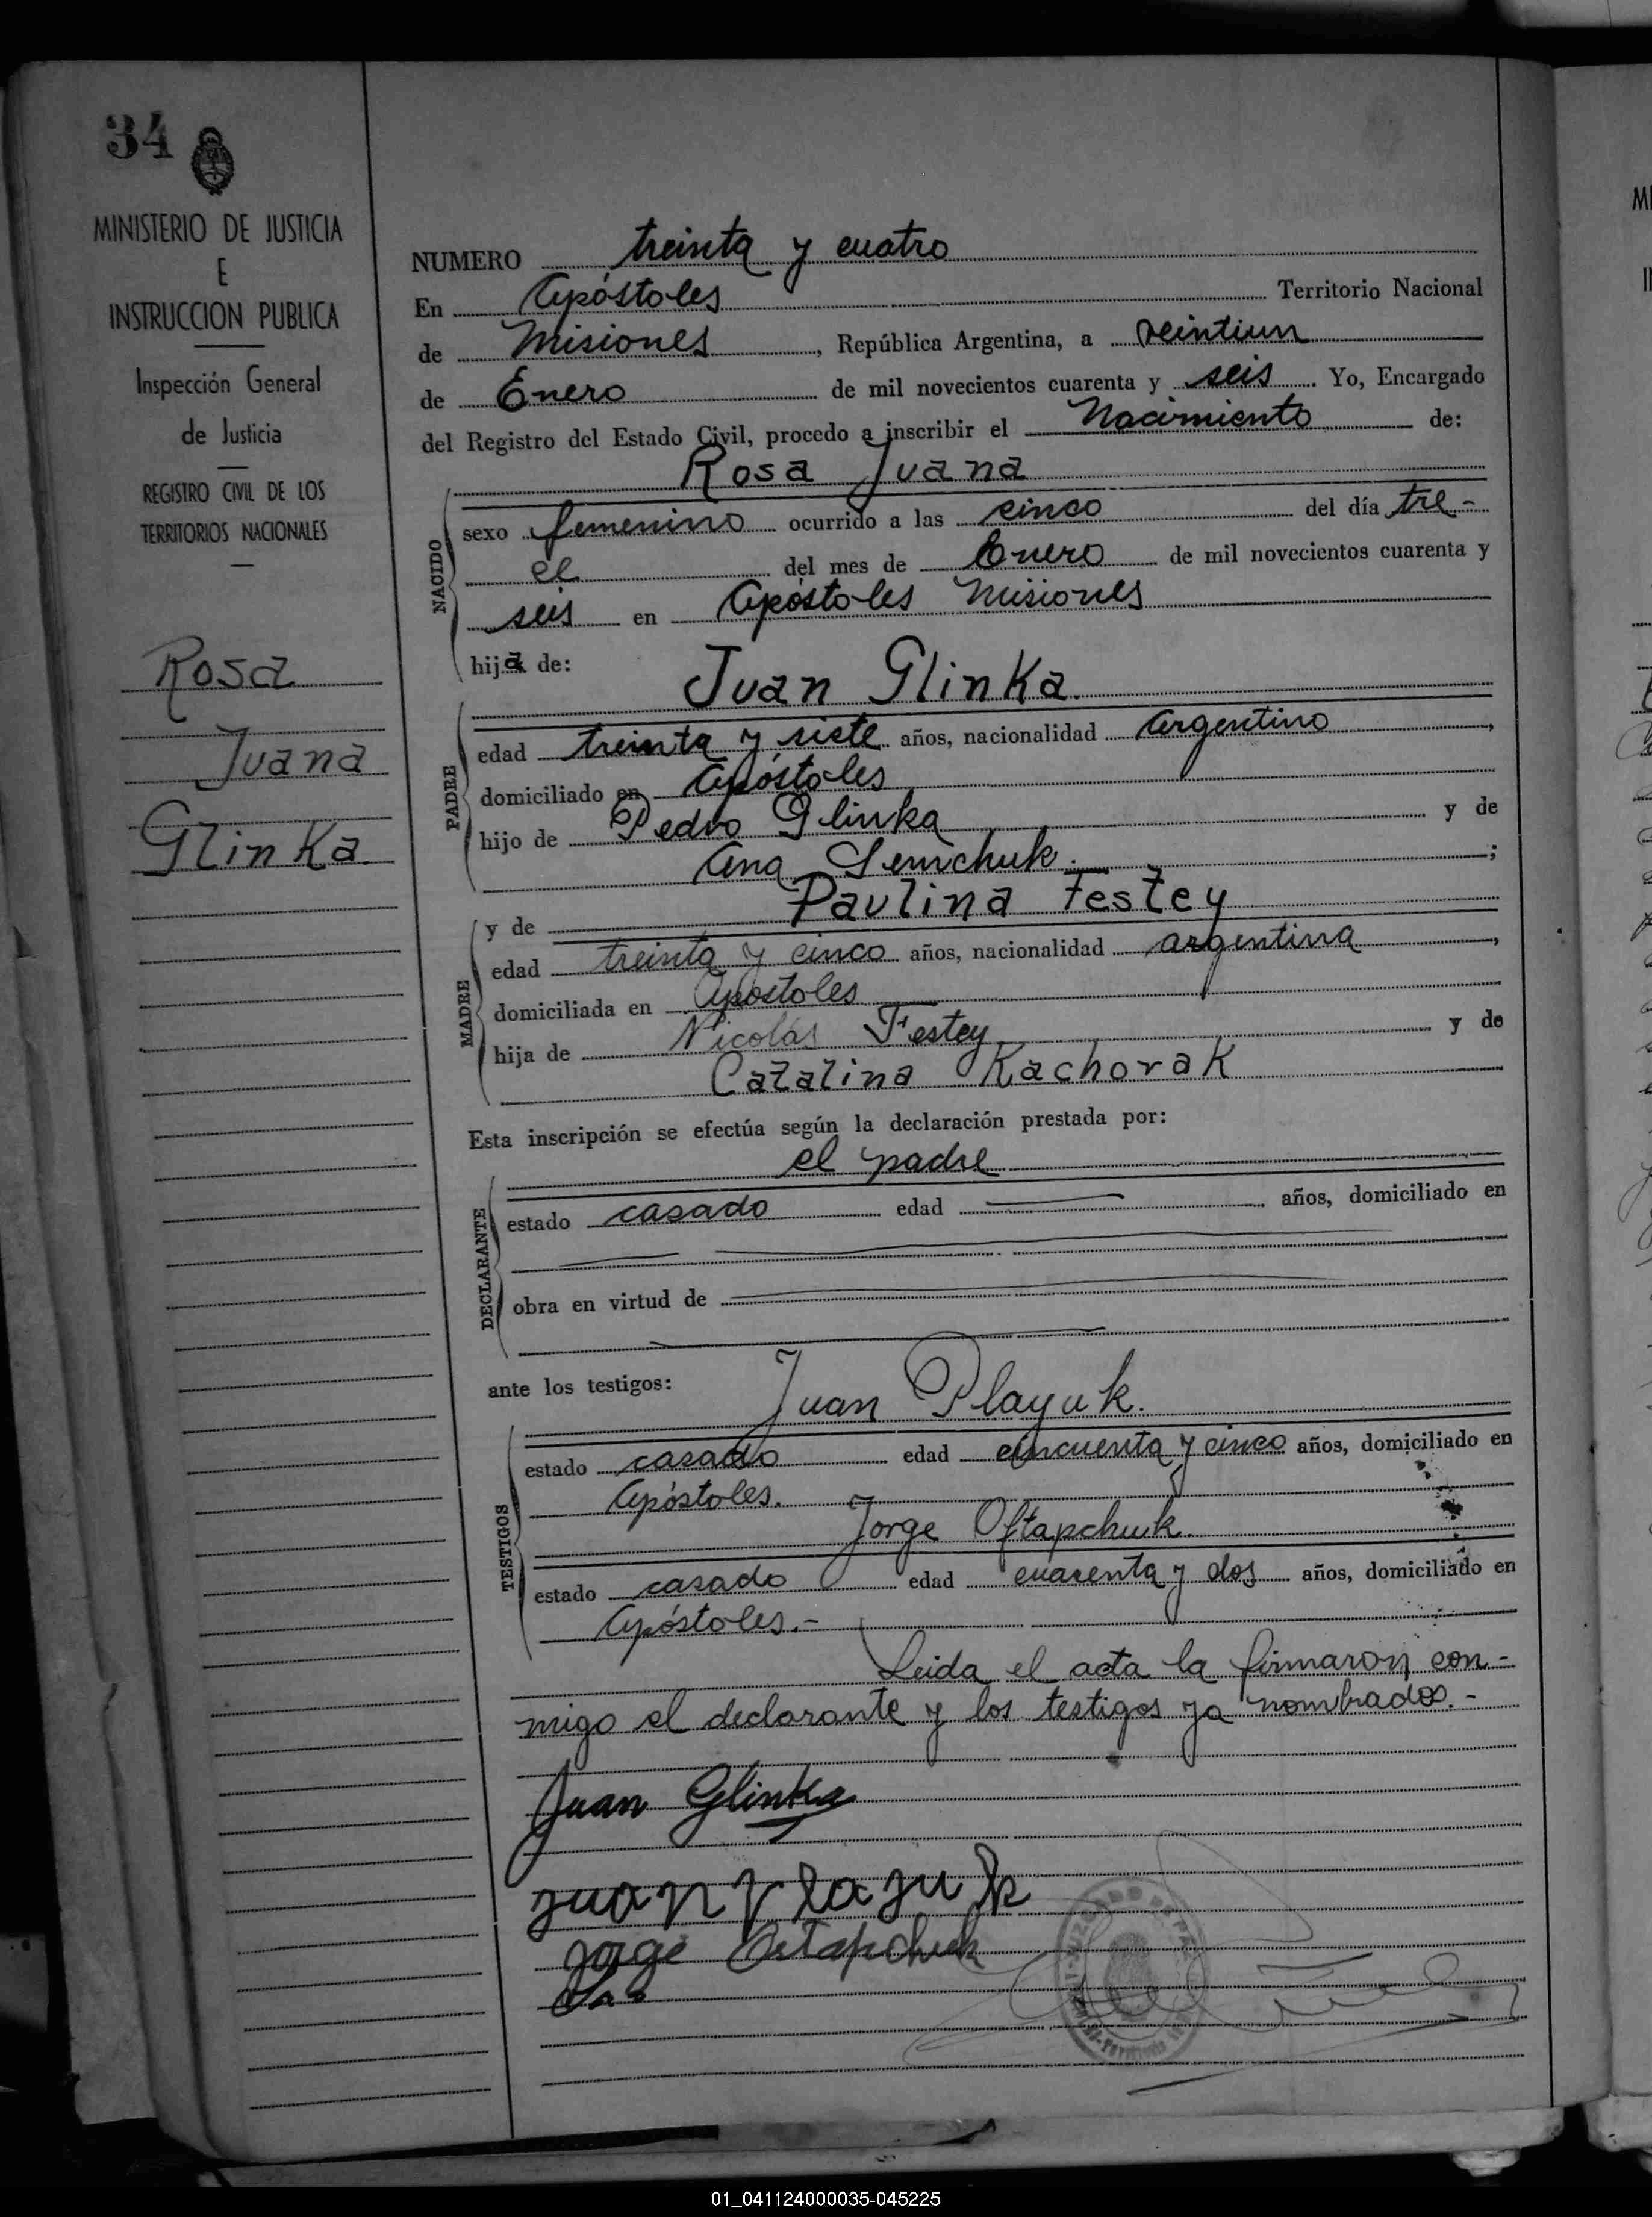 34
MINISTERIO DE JUSTICIA
E
INSTRUCCION PUBLICA
Inspección General
de Justicia
REGISTRO CIVIL DE LOS
TERRITORIOS NACIONALES
Rosa
Juana
Glinka.
NUMERO treinta y cuatro
En Apóstoles Territorio Nacional
de Misiones, República Argentina, a veintiun
de Enero de mil novecientos cuarenta y seis. Yo, Encargado
del Registro del Estado Civil, procedo a inscribir el Nacimiento de:
Rosa Juana
NACIDO
sexo femenino ocurrido a las cinco del día tre-
ce del mes de Enero de mil novecientos cuarenta y
seis en Apóstoles Misiones
hija de:
Juan Glinka.
PADRE
edad treinta y siete años, nacionalidad Argentino,
domiciliado en Apóstoles
hijo de Pedro Glinka y de
Ana Semchuk.;
y de Paulina Festey
MADRE
edad treinta y cinco años, nacionalidad argentina,
domiciliada en Apostoles
hija de Nicolás Festey y de
Catalina Kachorak
Esta inscripción se efectúa según la declaración prestada por:
el padre
DECLARANTE
estado casado edad años, domiciliado en
obra en virtud de
ante los testigos: Juan Playuk.
TESTIGOS
estado casado edad cincuenta y cinco años, domiciliado en
Apóstoles.
Jorge Oftapchuk.
estado casado edad cuarenta y dos años, domiciliado en
Apóstoles.-
Leida el acta la firmaron con-
migo el declarante y los testigos ya nombrados.-
Juan Glinka
Juan Plajuk
Jorge Ostapchuk
01_041124000035-045225